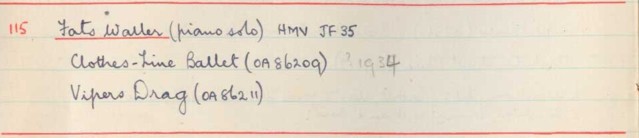 115 Fats Waller (piano solo) HMV JF 35
Clothes-Line Ballet (OA86209) ? 1934
Vipers Drag (OA86211)